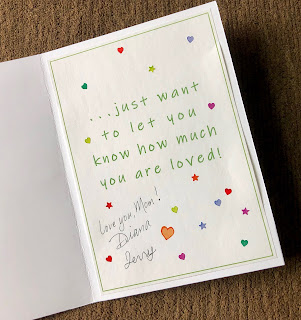 ...just want
to let you
know how much
you are loved!
Love you, Mom!
Deana
Jerry